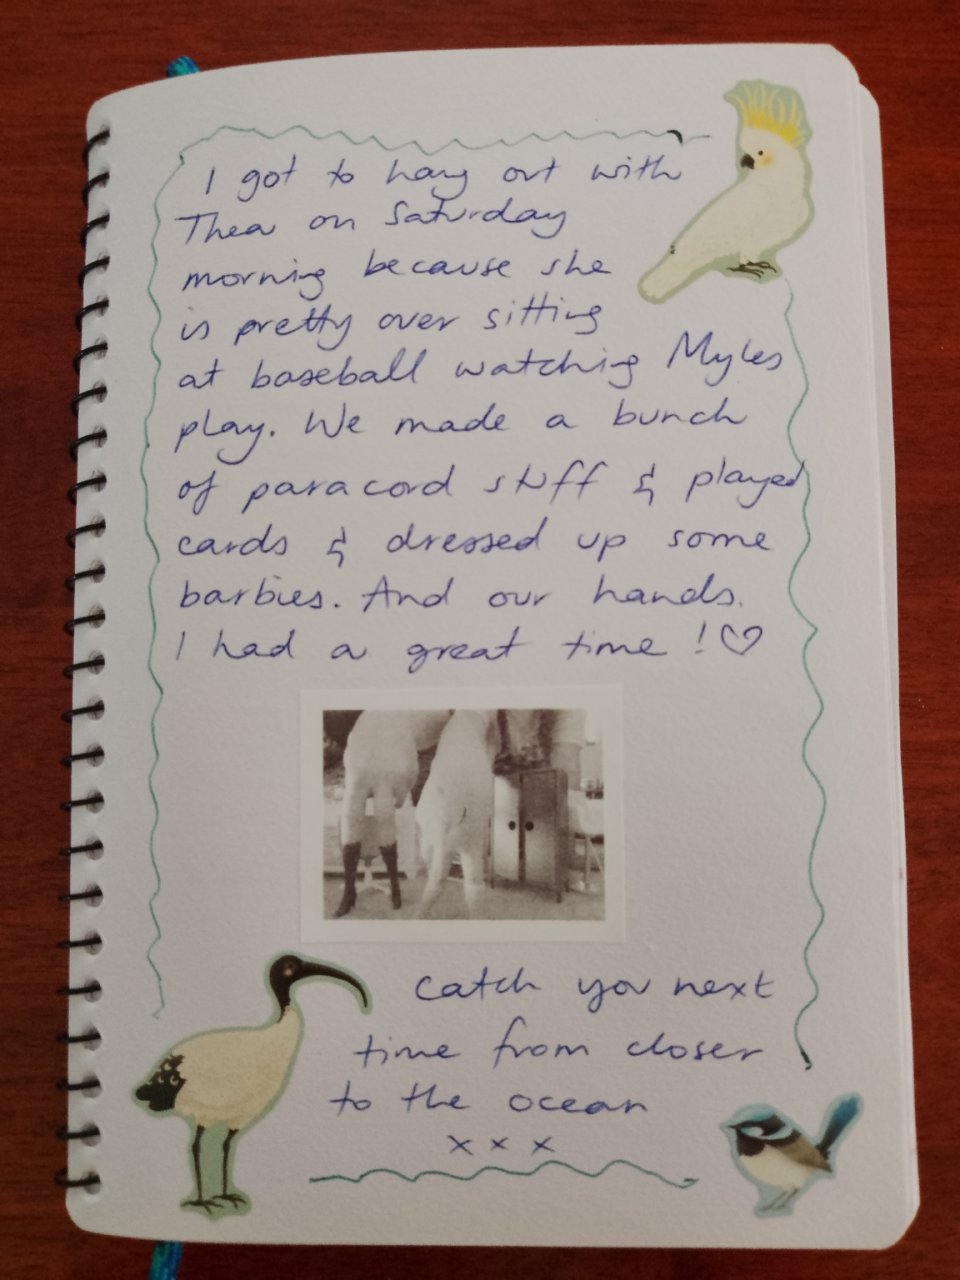 I got to hang out with
Thea on Saturday
morning because she
is pretty over sitting
at baseball watching Myles
play. We made a bunch
of paracord stuff & played
cards & dressed up some
barbies. And our hands.
I had a great time! ♡
Catch you next
time from closer
to the ocean
x x x